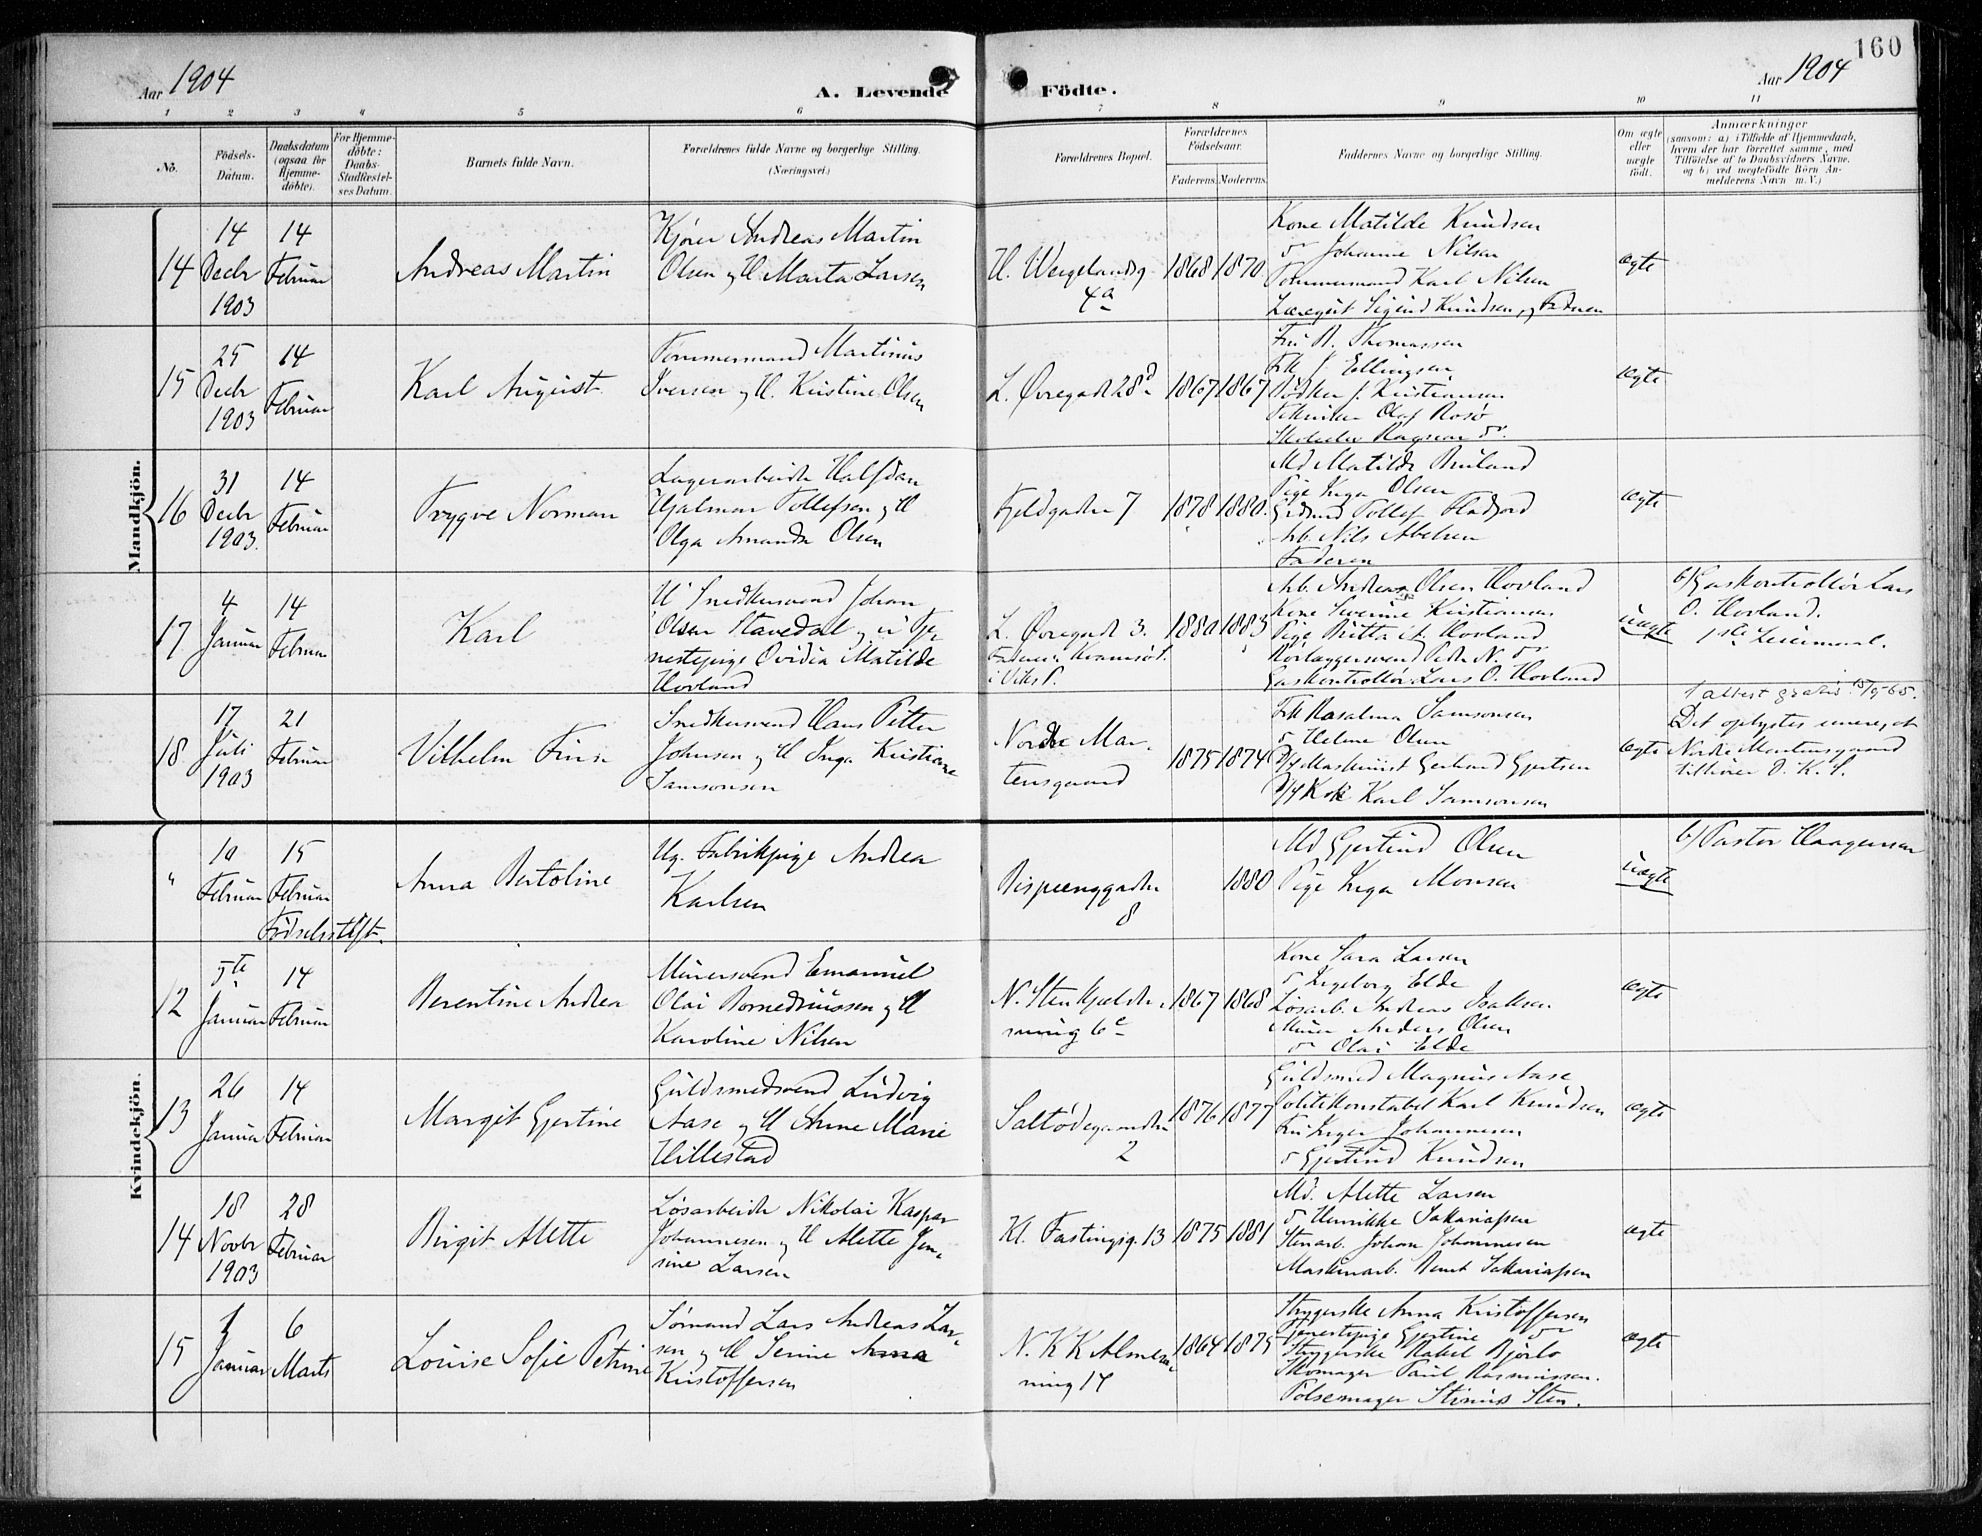 160
Aar 1904
A. Levende Födte.
Aar 1904
1 2 3 4 5 6 7 8 9 10 11
No.
Födsels-
Datum.
Daabsdatum
(ogsaa för
Hjemme-
döbte).
For Hjemme-
döbte:
Daabs-
Stadfæstel-
ses Datum.
Barnets fulde Navn.
Forældrenes fulde Navne og borgerlige Stilling.
(Næringsvei.)
Forældrenes Bopæl.
Forældrenes
Födselsaar.
Faderens. Moderens.
Faddernes Navne og borgerlige Stilling.
Om ægte
eller
uægte
födt.
Anmærkninger
(saasom: a) i Tilfælde af Hjemmedaab,
hvem der har forrettet samme, med
Tilföielse af to Daabsvidners Navne,
og b) ved uegtefödte Börn An-
melderens Navn m. V.)
Mandkjön.
14
14
Decbr
1903
14
Februar
Andreas Martin
Kjører Andreas Martin
Olsen og H Marta Larsen
H. Wergelandsg
4a
1868
1870
Kone Matilde Knudsen
do Johanne Nilsen
Tømmermand Karl Nilsen
Læregut Sigurd Knudsen, og Faderen
ægte
15
25
Decbr
1903
14
Februar
Karl August
Tømmermand Martinus
Iversen og H. Kristine Olsen
L. Øvregade 28d
1867
1867
Fru R. Thomassen
Frk J. Ellingsen
Bødker J. Kristiansen
Tekniker Olaf Rosø
Ragnar do.
ægte
16
31
Decbr
1903.
14
Februar
Trygve Norman
Lagerarbeider Halfdan
Hjalmar Tollefsen og H
Olga Amanda Olsen
Fjeldgaden 7
1878
1880.
Md Matilde Bruland
Pige Inga Olsen
Tollef Fladfjord
Arb. Nils Abelsen
Faderen
ægte
17
4
Januar
14
Februar
Karl
U Snedkersvend Johan
Olsen Stavedal og u Tje-
nestepige Ovidia Matilde
Hovland
L. Øvregade 3.
Faderen Kvamsø S.
i Viks P.
1880
1883
Arb. Andreas Olsen Hovland
Kone Severine Kristiansen
Pige Britta Hovland
Rørlæggersvend Peder N. do
Gaskontrollør Lars O. Hovland
uægte
b) Gaskontrollør Lars
O. Hovland.
1ste Leiermaal.
18
17
Juli
1903
21
Februar
Vilhelm Finn
Snedkersvend Hans Petter
Johnsen og H Inga Kristiane
Samsonsen
Nordre Mar-
tensgaard
1875
1874
Frk Rosalina Samsonsen
do Helene Olsen
D/s Maskinist Gerhard Gjertsen
D/s Kok Karl Samsonsen
ægte
1 attest gratis 15/9-65.
Det oplystes senere, at
Nordre Martensgaard
tilhører D. K. S.
Kvindekjön.
"
10
Februar
15
Februar
Fødselsstift.
Anna Bertoline
Ug. Fabrikpige Andrea
Karlsen
Bispeenggaden
8
1880
Md Gjertrud Olsen
Pige Inga Monsen
uægte
b) Pastor Haagensen
12
5te
Januar
14
Februar
Berentine Andrea
Murersvend Emanuel
Olai Bornedriussen og H
Karoline Nilsen
N. Stenkjelder-
smug 6c
1867
1868
Kone Sara Larsen
do Ingeborg Elde
Løsarb. Andreas Isaksen
Murer Anders Olsen
do Olai Elde
ægte
13
26
Januar
14
Februar
Margit Gjertine
Guldsmedsvend Ludvig
Aase og H Anne Marie
Hillestad
Saltbodegaarden
2
1876
1877
Guldsmed Magnus Aase
Politikonstabel Karl Knudsen
Fru Inger Johannesen
do Gjertrud Knudsen
ægte
14
18
Novbr
1903
28
Februar
Birgit Alette
Løsarbeider Nikolai Kaspar
Johannesen og H Alette Jen-
sine Larsen
Kl. Fastingsg. 13
1875
1881
Md. Alette Larsen
do Henrikke Sakariassen
Stenarb. Johan Johannesen
Maskinarb. Bernt Sakariassen
ægte
15
1
Januar
6
Marts
Louise Sofie Petrine
Sømand Lars Andreas Lar-
sen og H Serine Anna
Kristoffersen
N. K K Almen-
ning 14
1864
1875
Strygerske Anna Kristoffersen
Tjenestepige Gjertine do
Strygerske Rakel Bjørlo
Skomager Paul Rasmussen.
Pølsemager Sten.
ægte